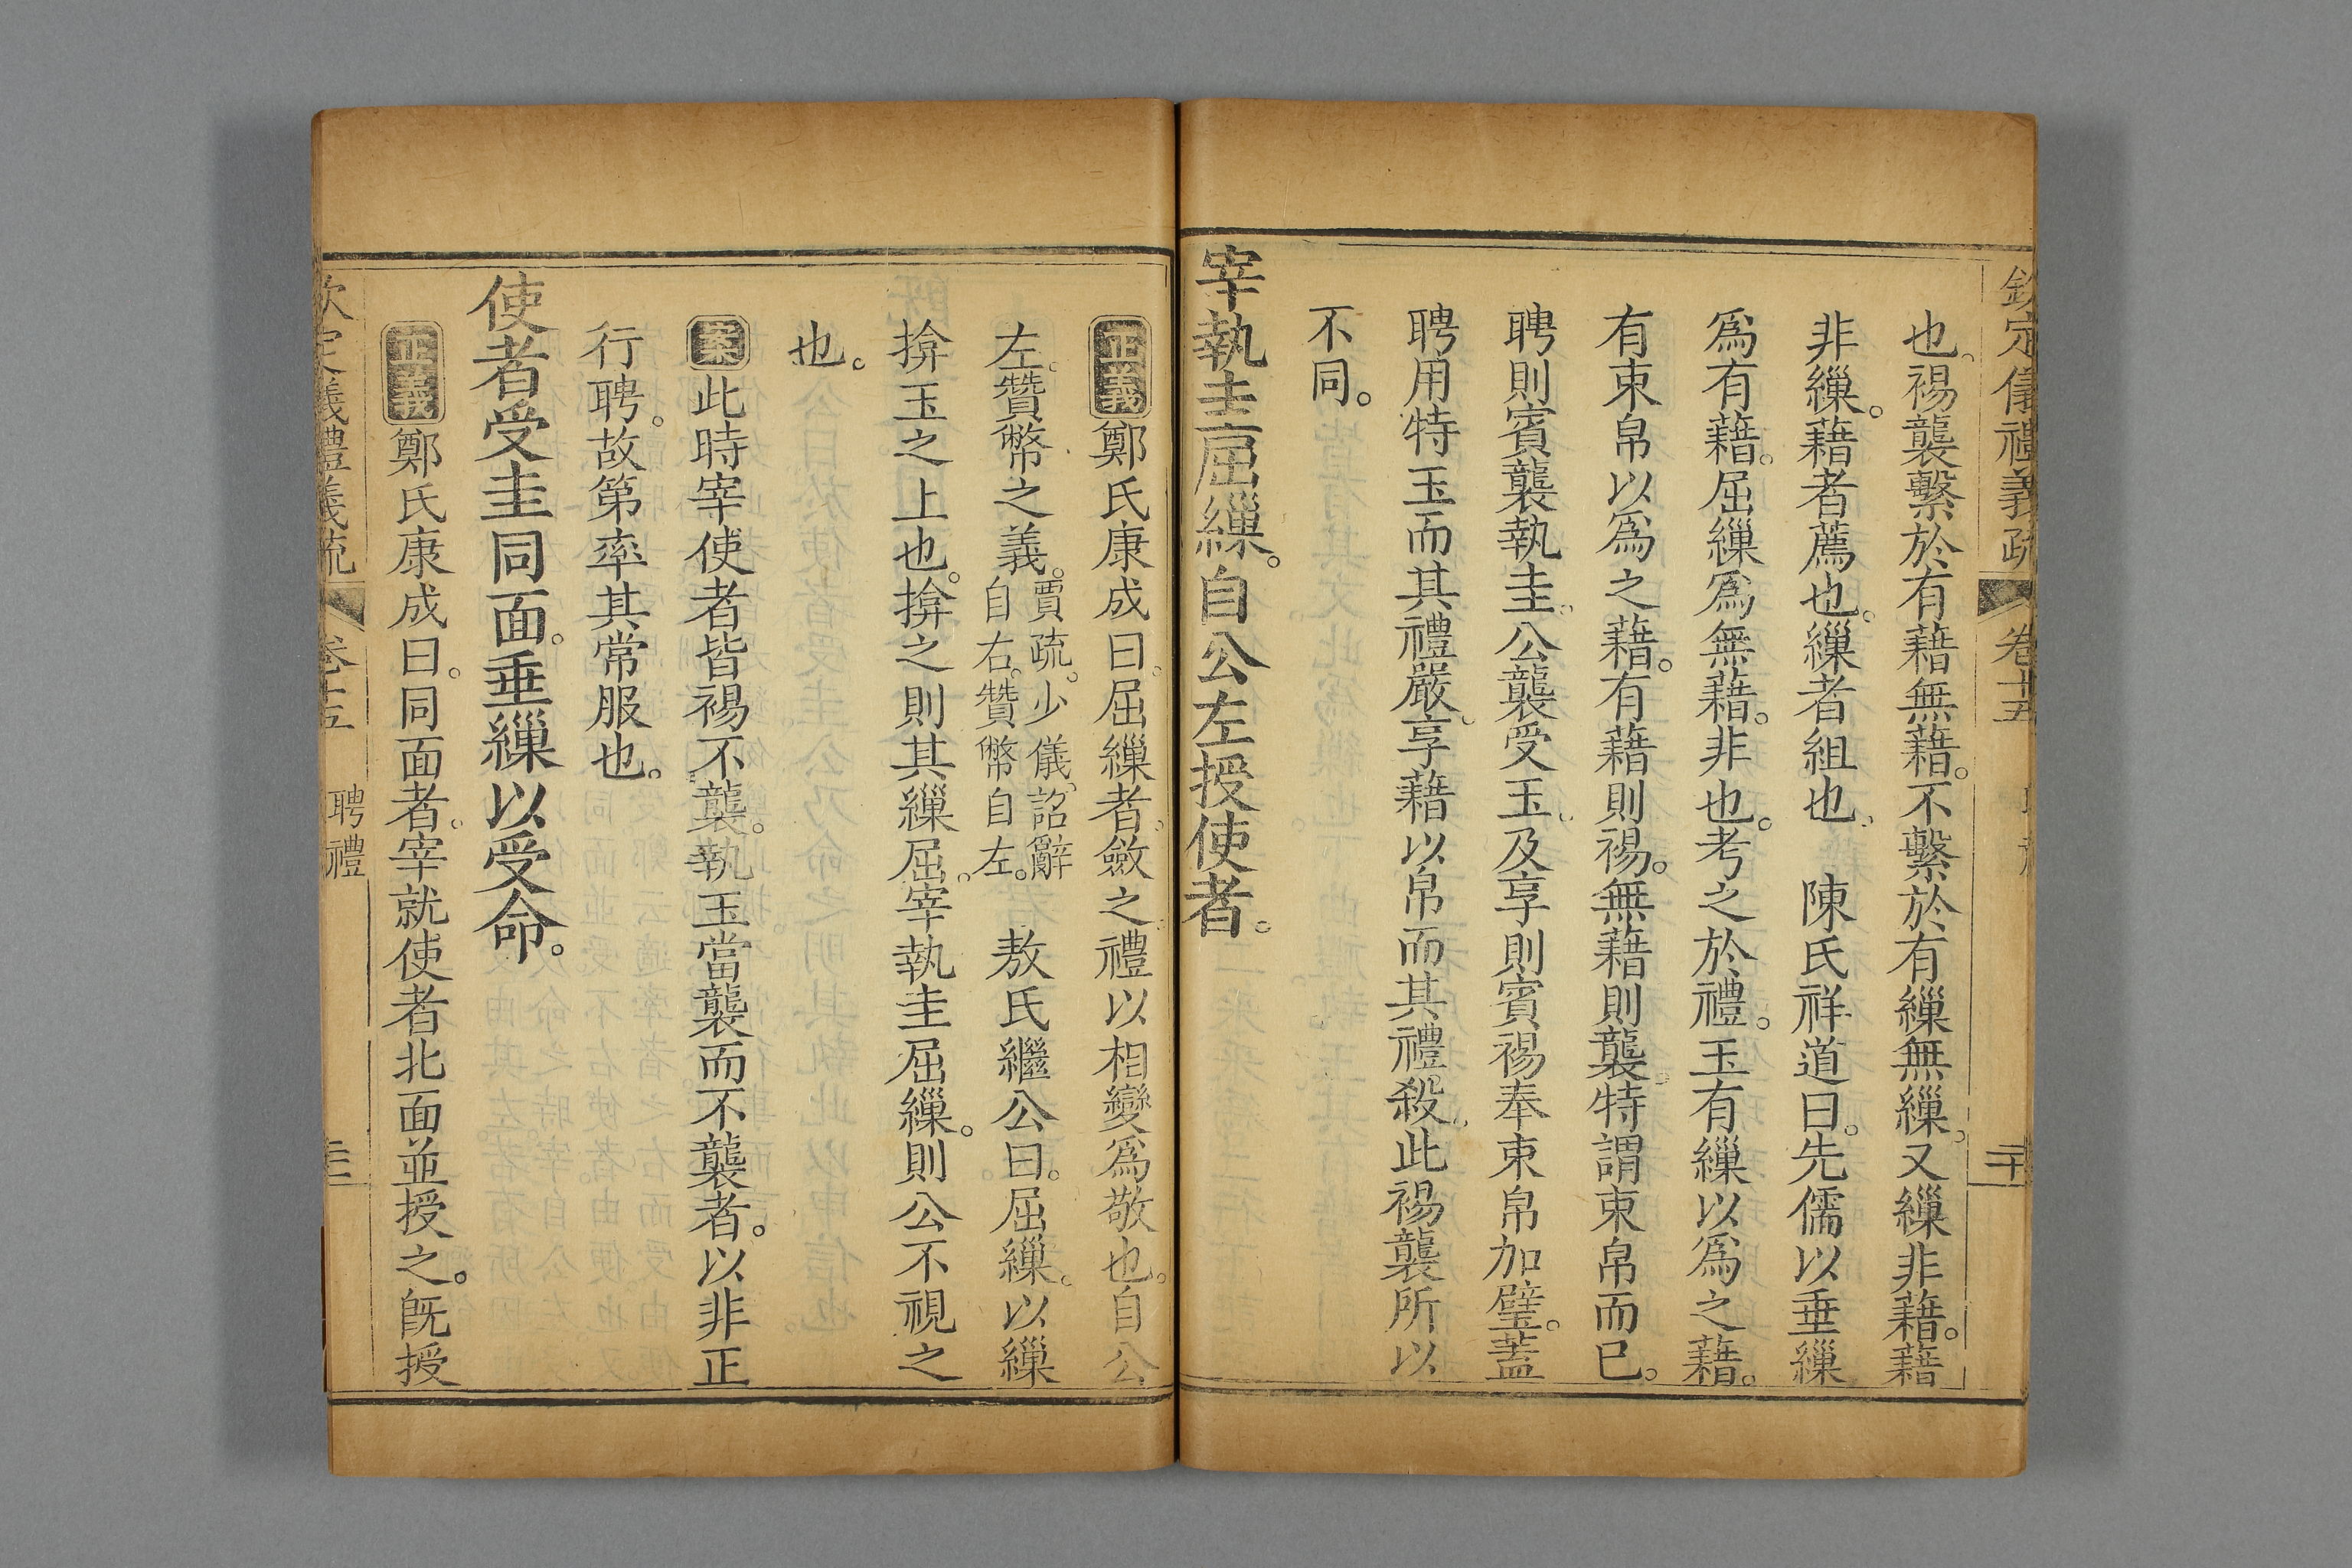 欽定儀禮義疏 卷十五 二十
也。裼襲繫於有藉無藉。不繫於有繅無繅。又繅非藉。藉
非繅。藉者薦也。繅者組也。 陳氏祥道曰。先儒以垂繅
爲有藉。屈繅爲無藉。非也。考之於禮。玉有繅以爲之藉。
有束帛以爲之藉。有藉則裼。無藉則襲。特謂束帛而已。
聘則賓襲執圭。公襲受玉。及享則賓裼奉束帛加璧。蓋
聘用特玉而其禮嚴。享藉以帛而其禮殺。此裼襲所以
不同。
宰執圭屈繅。自公左授使者。
正義 鄭氏康成曰。屈繅者。斂之。禮以相變爲敬也。自公
左。贊幣之義。賈疏。少儀。詔辭自右。贊幣自左。 敖氏繼公曰。屈繅。以繅
揜玉之上也。揜之則其繅屈。宰執圭屈繅。則公不視之
也。
案 此時宰使者皆裼不襲。執玉當襲而不襲者。以非正
行聘。故第率其常服也。
使者受圭同面。垂繅以受命。
正義 鄭氏康成曰。同面者。宰就使者北面並授之。旣授
欽定儀禮義疏 卷十五 聘禮